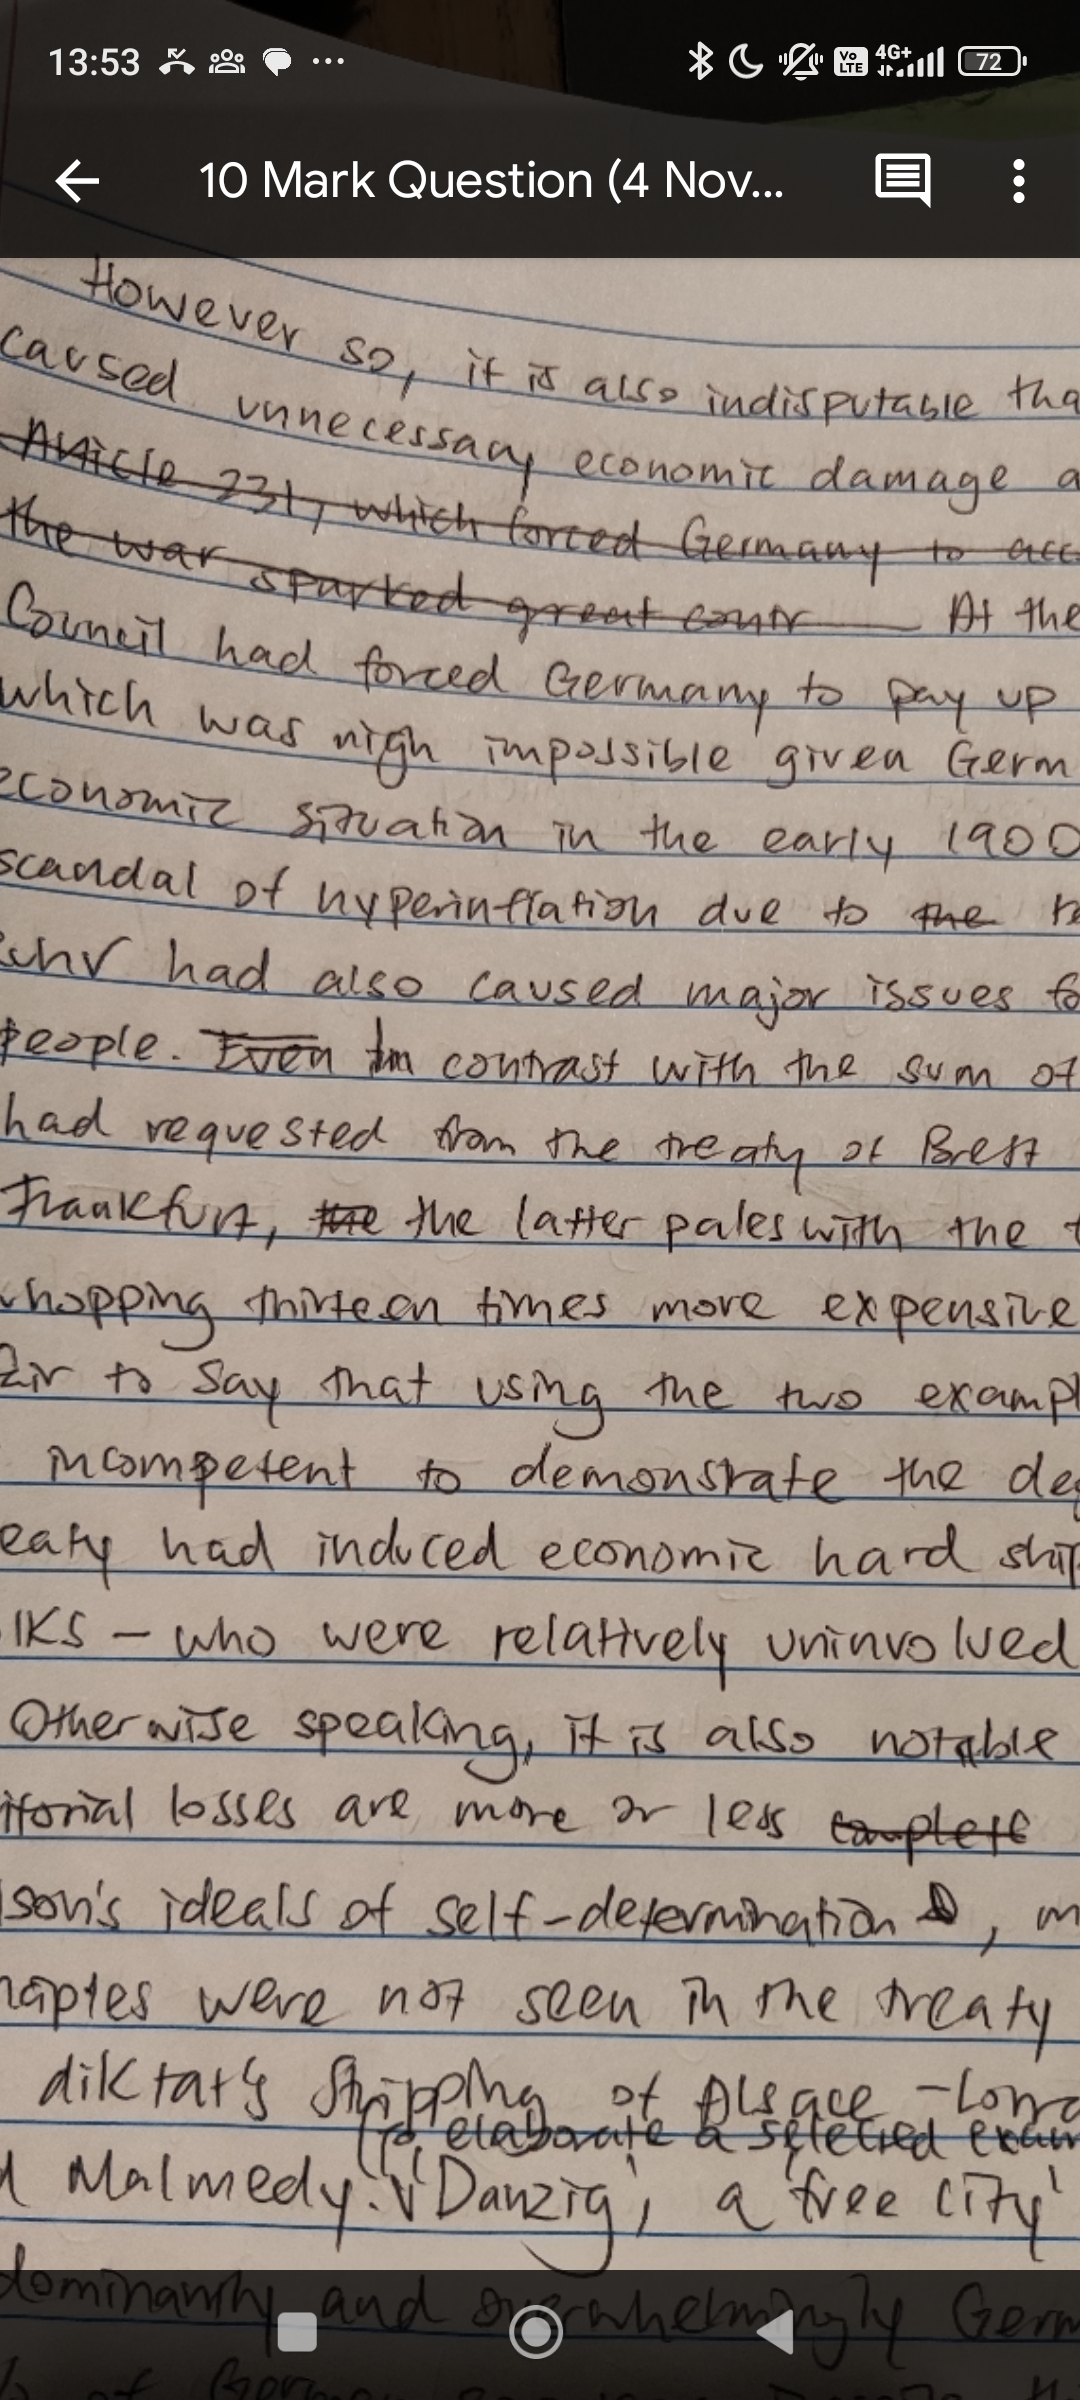 13:53
Vo LTE 4G+ 72
10 Mark Question (4 Nov...
However so, it is also indisputable tha
caused unnecessary economic damage a
Article 231, which forced Germany to acc
the war sparked great contr At the
Council had forced Germany to pay up
which was nigh impossible given Germ
economic situation in the early 1900
scandal of hyperinflation due to the re
Ruhr had also caused major issues fo
people. Even In contrast with the sum of
had requested from the treaty of Brest
Frankfurt, the the latter pales with the t
whopping thirteen times more expensive
air to say that using the two exampl
incompetent to demonstrate the deg
eaty had induced economic hard ship
lks - who were relatively uninvolved
Otherwise speaking, it is also notable
itorial losses are more or less complete
lson's ideals of self-determination , m
were not seen in the treaty
diktat's stripping of Alsace-Lorra
To elaborate a selected exam
d Malmedy. 'Danzig', a 'free city'
dominantly and overwhelmingly Germ
of German